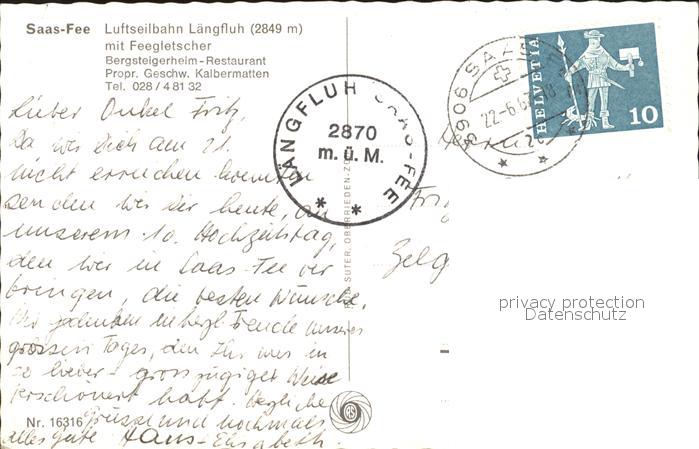 Saas-Fee Luftseilbahn Längfluh (2849 m)
mit Feegletscher
Bergsteigerheim-Restaurant
Propr. Geschw. Kalbermatten
Tel. 028 / 4 81 32
Lieber Onkel Fritz,
Da wir Dich am 21.
nicht erreichen konnten
senden wir Dir heute, an
unserem 10. Hochzeitstag,
den wir in Saas-Fee ver
bringen, die besten Wünsche.
Wir gedenken in herzl. Freude unseres
grossen Tages, den Ihr uns in
so lieber - grosszügiger Weise
verschönert habt. Herzliche
Grüsse und nochmals
alles gute Hans-Elisabeth.
Nr. 16316
LÄNGFLUH SAAS-FEE
2870
m. ü. M.
SUTER, OBERRIEDEN-Z
3906 SAAS
22-6.6
HELVETIA
10
Herrn
Fri
Zelg
privacy protection
Datenschutz